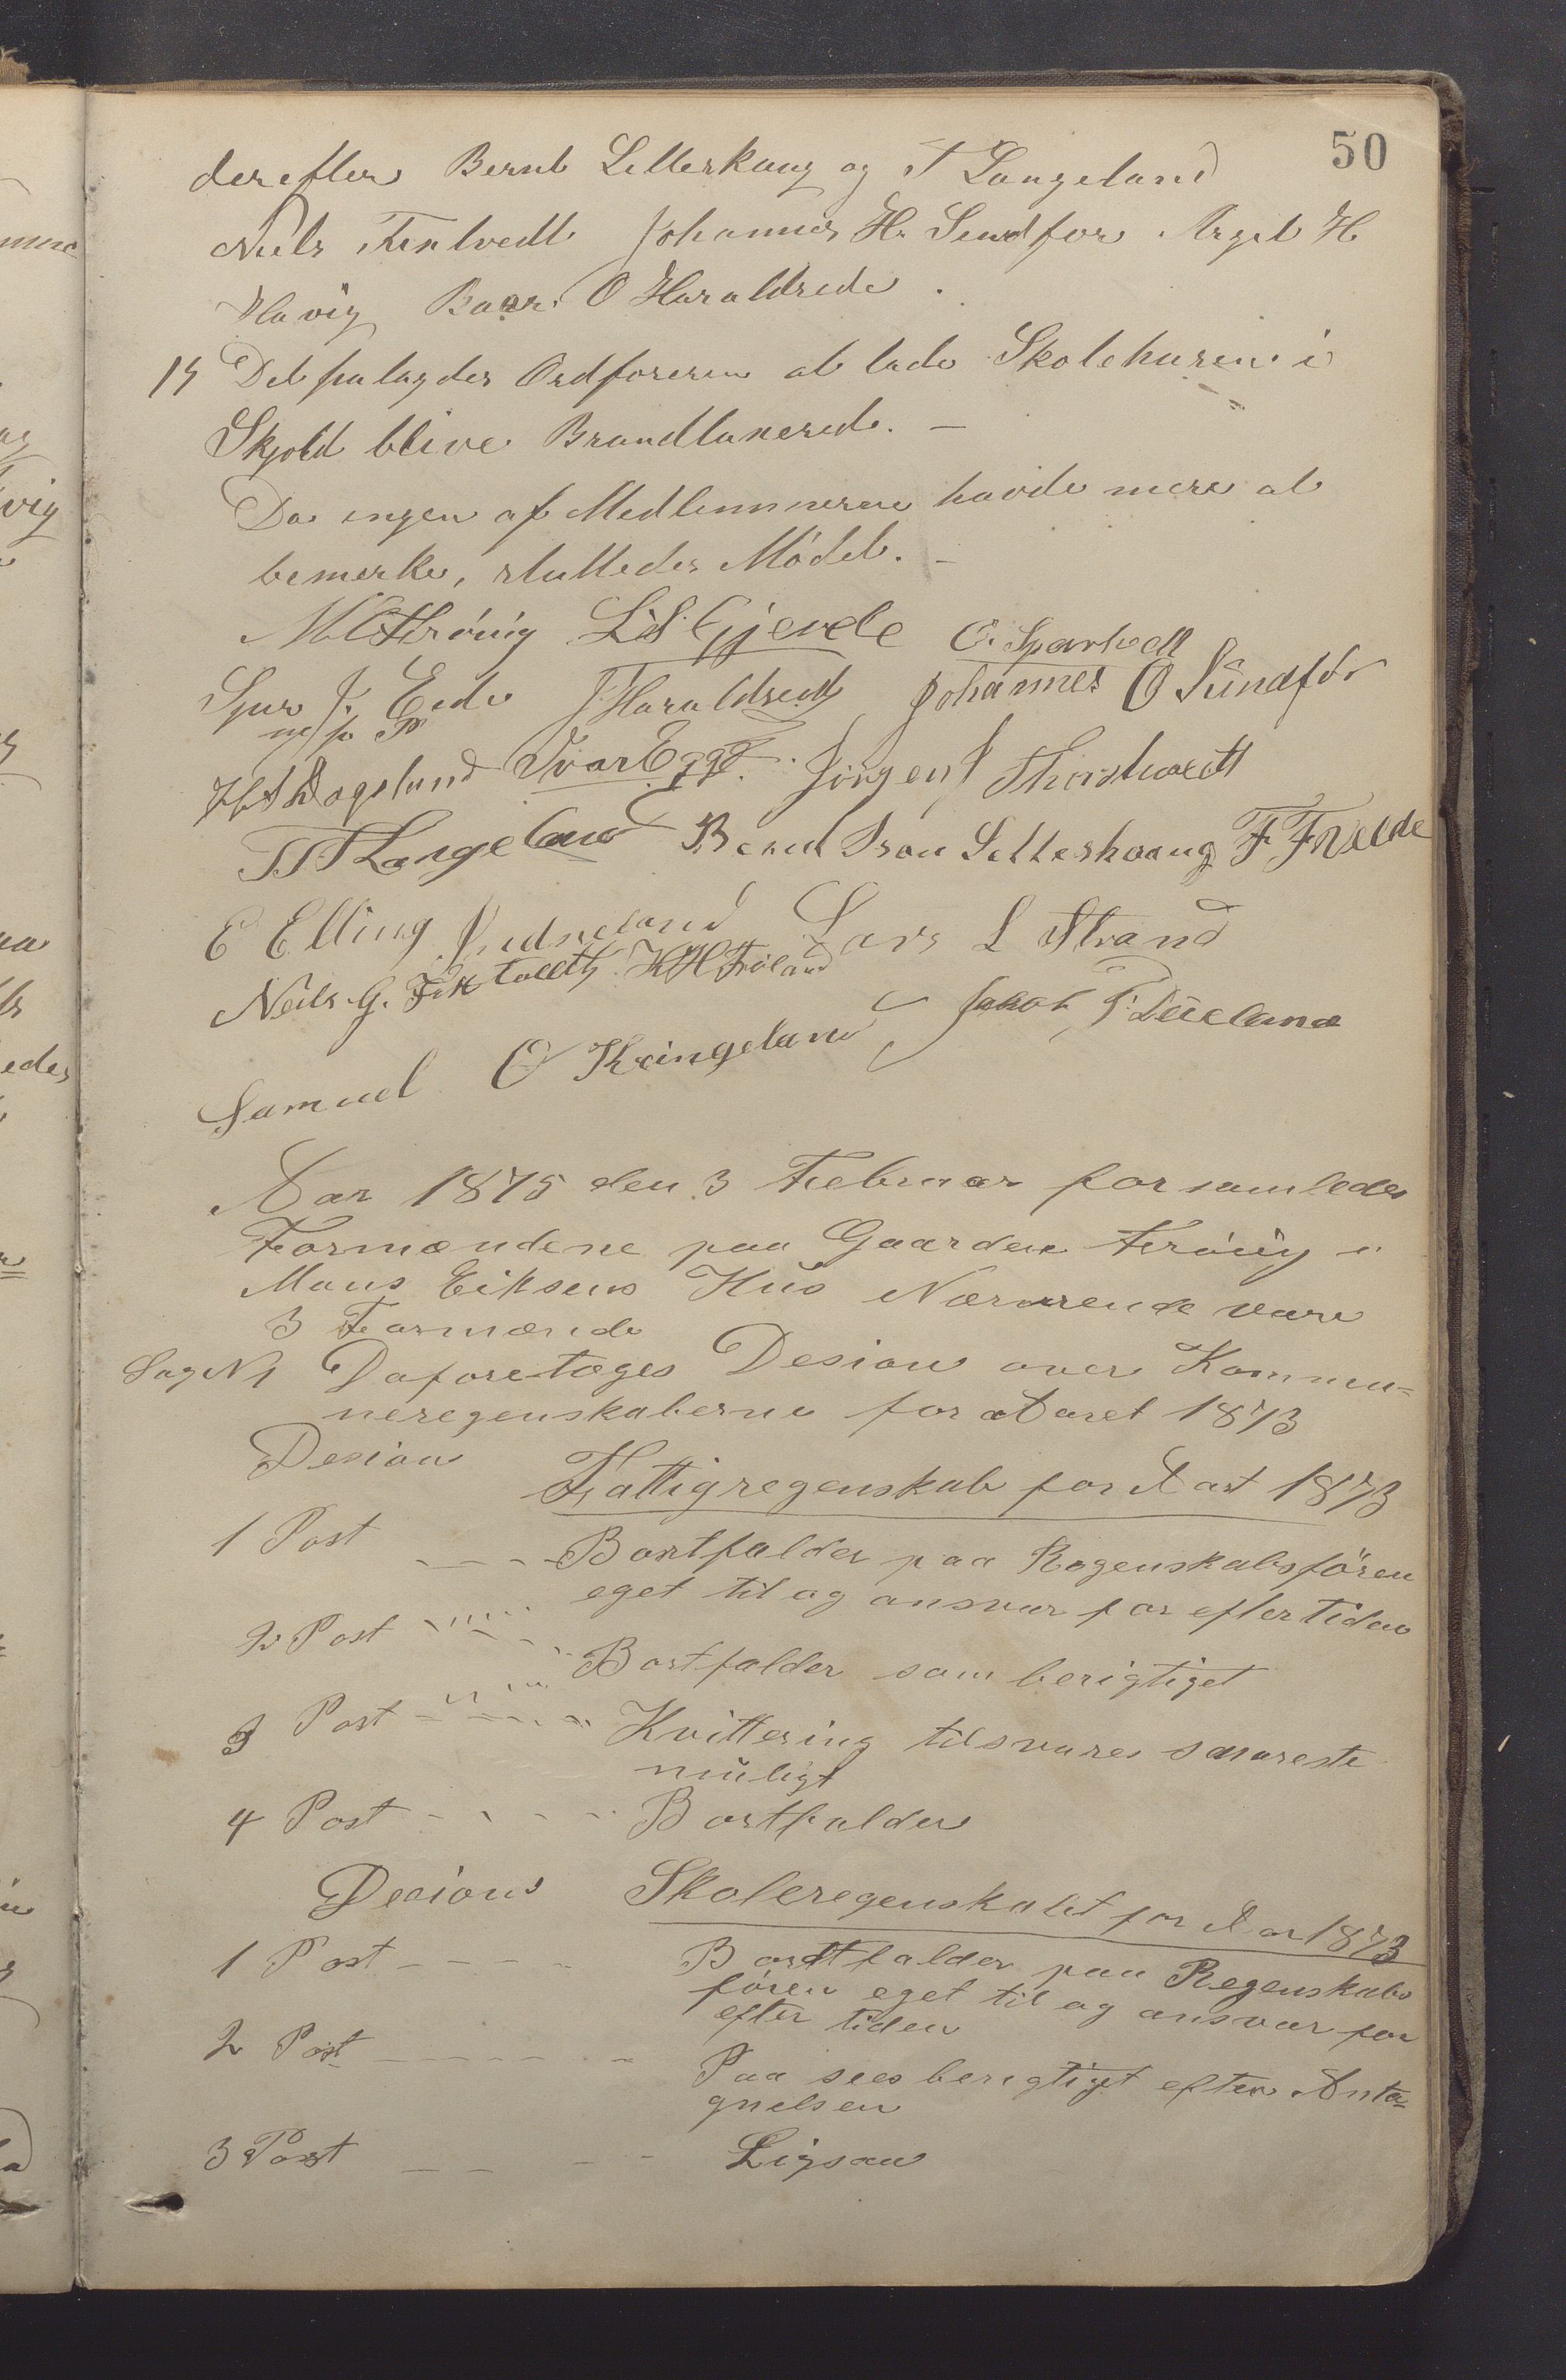 50
derefter Bernt Litleskaug og T Langeland
Niels Fixtvedt Johannes H. Sundfør Argel H
Havig Baar O Haraldseide.
14 Det paalagdes Ordføreren at lade Skolehusene i
Skjold blive Brandtaxerede. —
Da ingen af Medlemmerne havde mere at
bemerke, sluttedes Mödet. —
L S Gjerde O. Sparhedt
J. Eide J Haraldseid Johannes O Sündför
m/p P
Dagsland Ivar Egge. Jörgen J Thorstvedt
T T Langeland Bernt Litleskoug F F Velde
E Elling Lars L Strand
Neils. G. Fixtvedt K H Fröland
Samuel O Kringeland Jakob P. Düeland
Aar 1875 den 3 Februar forsamledes
Formændene paa Gaarden i
Mons Eiksens Hüs Nærværende vare
3 Formænde
Sag N 1 Da foretoges Desion over Kommu-
neregenskaberne for Aaret 1873
Desion Fattigregenskab for Aart 1873
1 Post - - - - Bortfalder paa Regenskabsfören
eget til og ansvar for efter tiden
2 Post - - - - Bortfalder som berigtiget
3 Post - - - - Kvittering tilsvares snareste
müligt
4 Post - - - - Bortfalder
Decions Skoleregenskabet for Aar 1873
1 Post - - - - Bortfalder paa Regenskabs
fören eget til og ansvar for
efter tiden
2 Post - - - - Paa sees berigtiget efter Anta-
gnelsen
3 Post - - - - Ligsaa